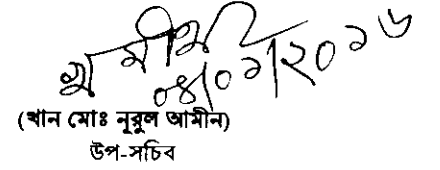 ০৪/০১/২০১৬
(খান মোঃ নূরুল আমীন)
উপ-সচিব